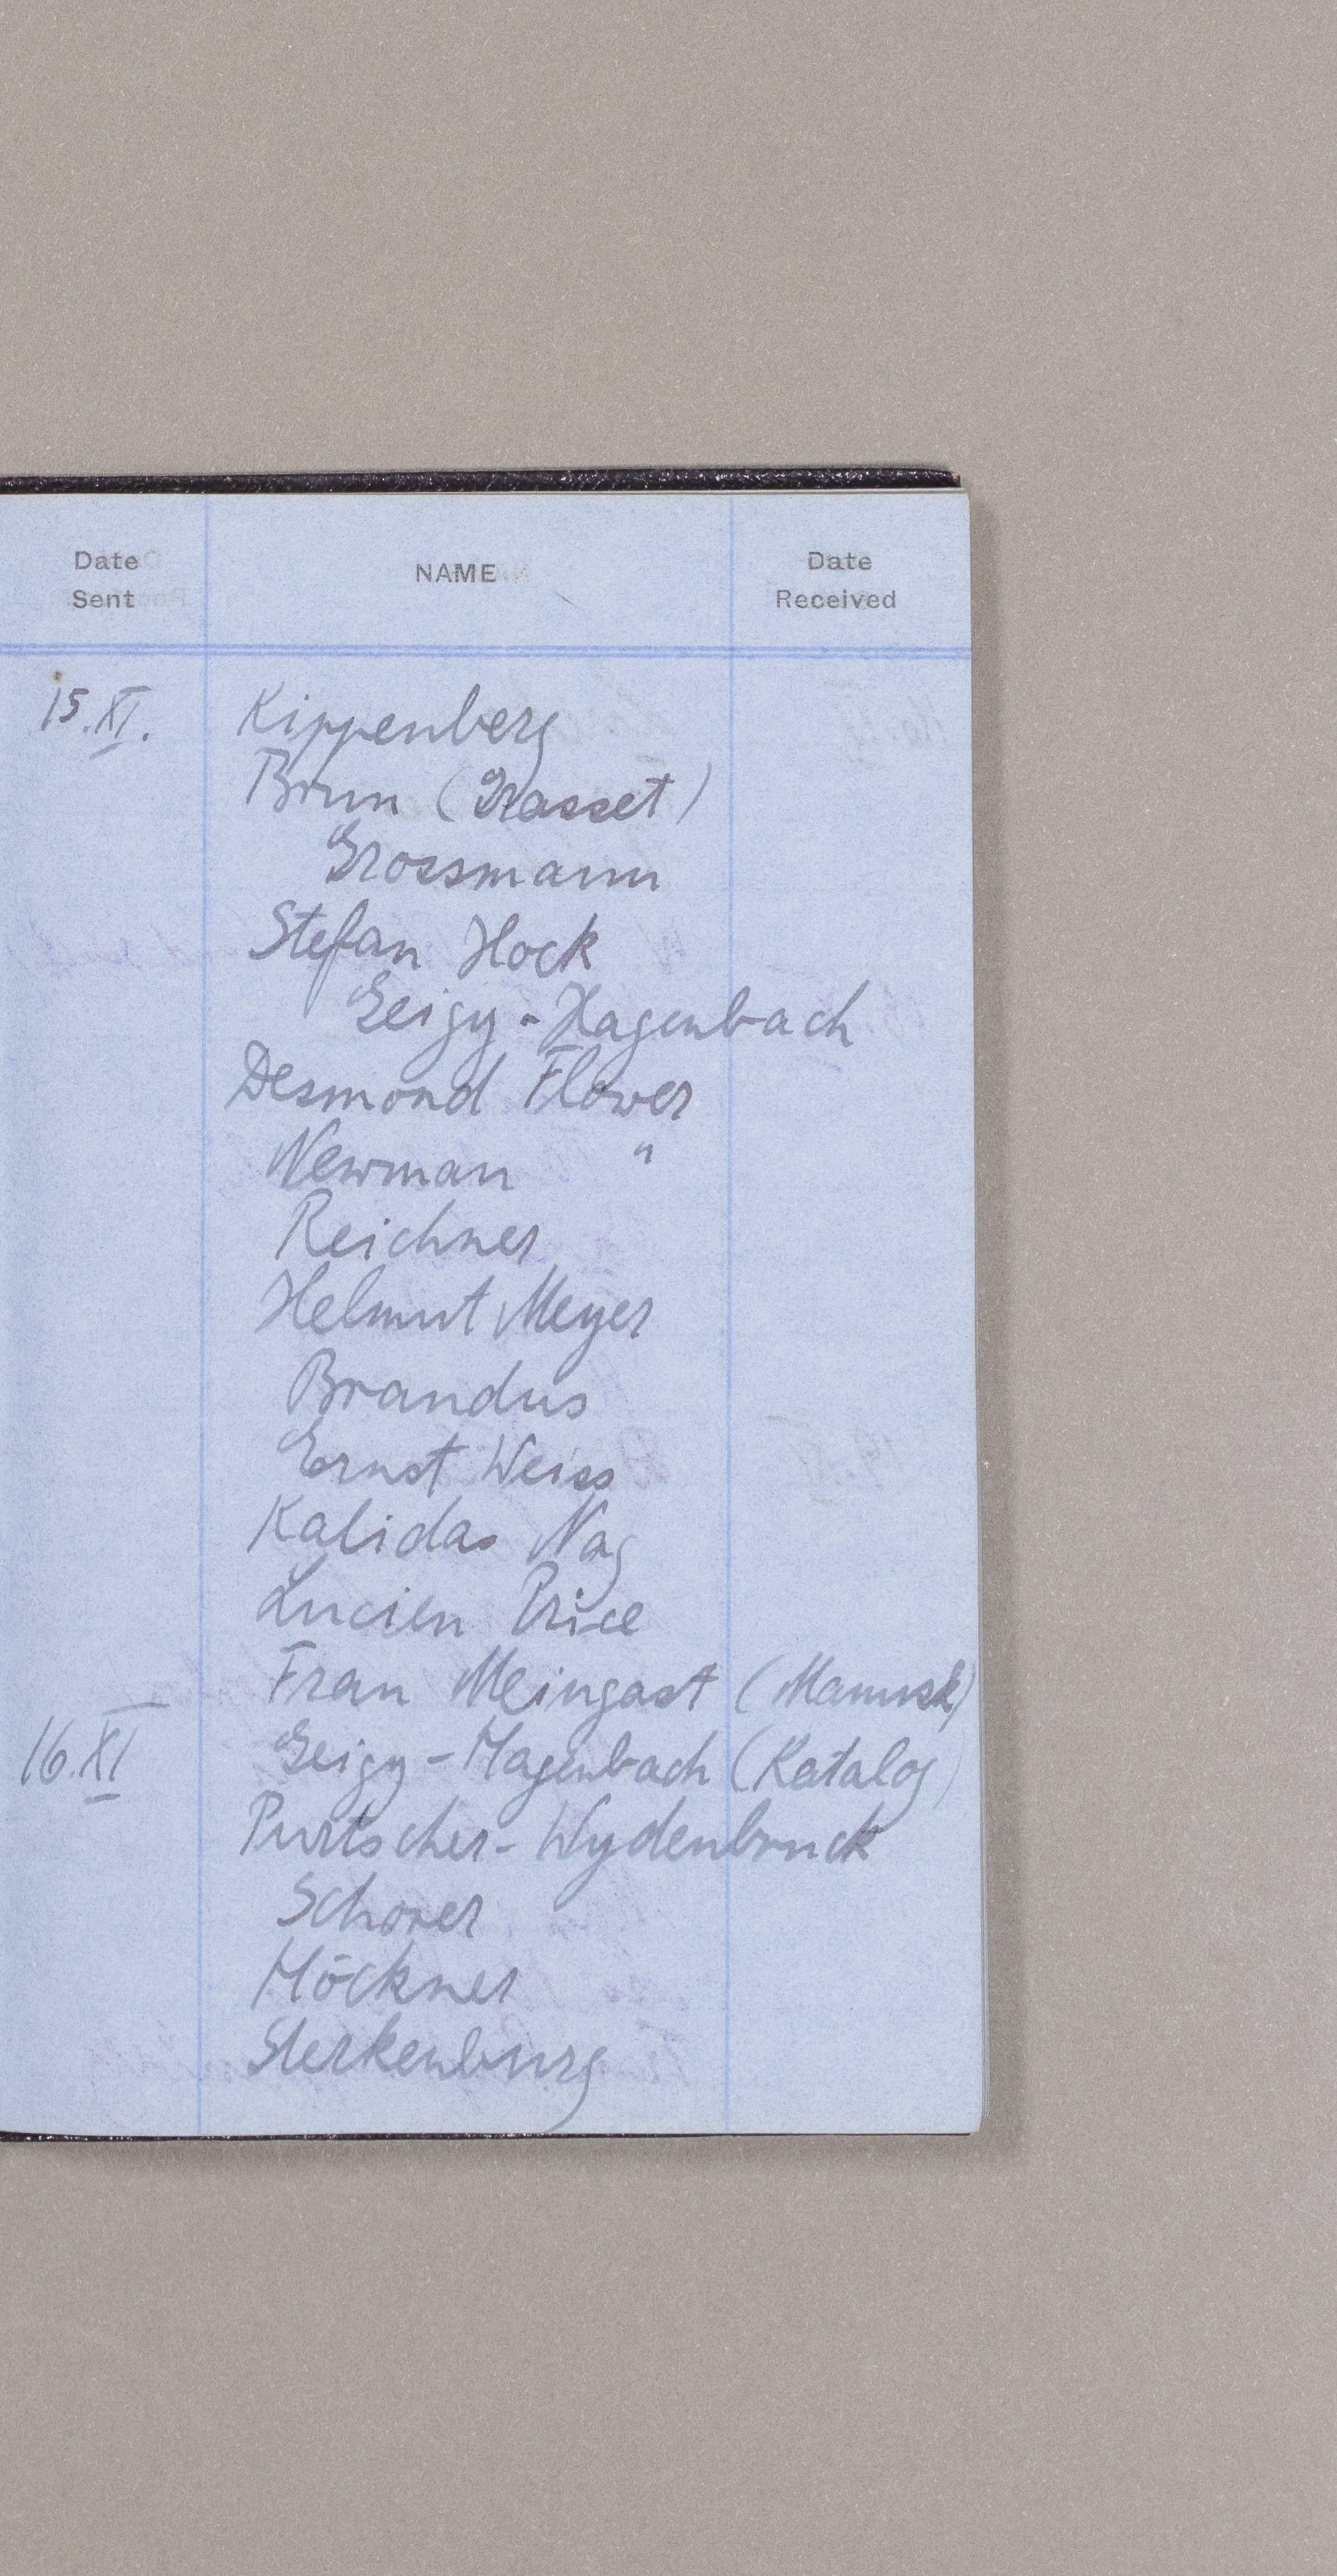 Date Sent NAME Date Received
15.XI. Kippenberg
Brun (Grasset)
Grossmann
Stefan Hock
Geigy-Hagenbach
Desmond Flower
Newman "
Reichner
Helmut Meyer
Brandus
Ernst Weiss
Kalidas Nag
Lucien Price
Frau Meingast (Manusk)
16.XI Geigy-Hagenbach (Katalog)
Purtscher-Wydenbruck
Schorer
Höckner
Sterkenburg